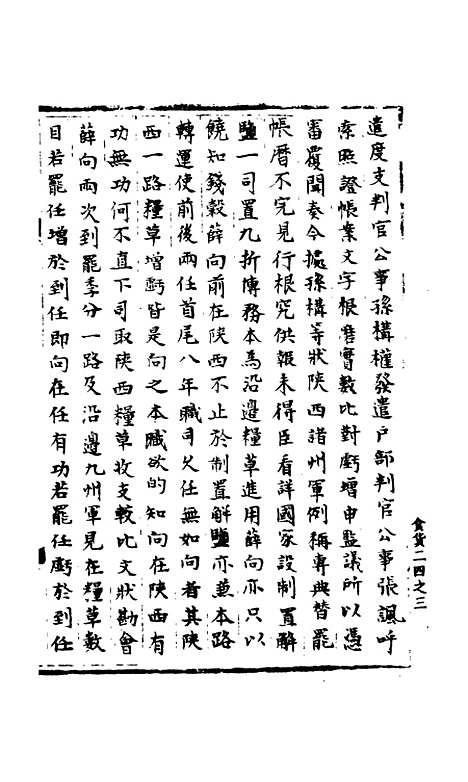 遣度支判官公事孫構權發遣戶部判官公事張諷呼
索照證帳案文字根磨實數比對虧增申監議所以憑
審覆聞奏今據孫構等狀陝西諸州軍例稱專典替罷
帳曆不完見行根究供報未得臣看詳國家設制置解
鹽一司置九折博務本為沿邊糧草進用薛向亦只以
饒知錢穀薛向前在陝西不止於制置解鹽亦兼本路
轉運使前後兩任首尾八年職司久任無如向者其陝
西一路糧草增虧皆是向之本職欲的知向在陝西有
功無功何不直下司取陝西糧草收支較比文狀勘會
薛向兩次到罷季分一路及沿邊九州軍見在糧草數
目若罷任增於到任即向在任有功若罷任虧於到任
食貨二四之三